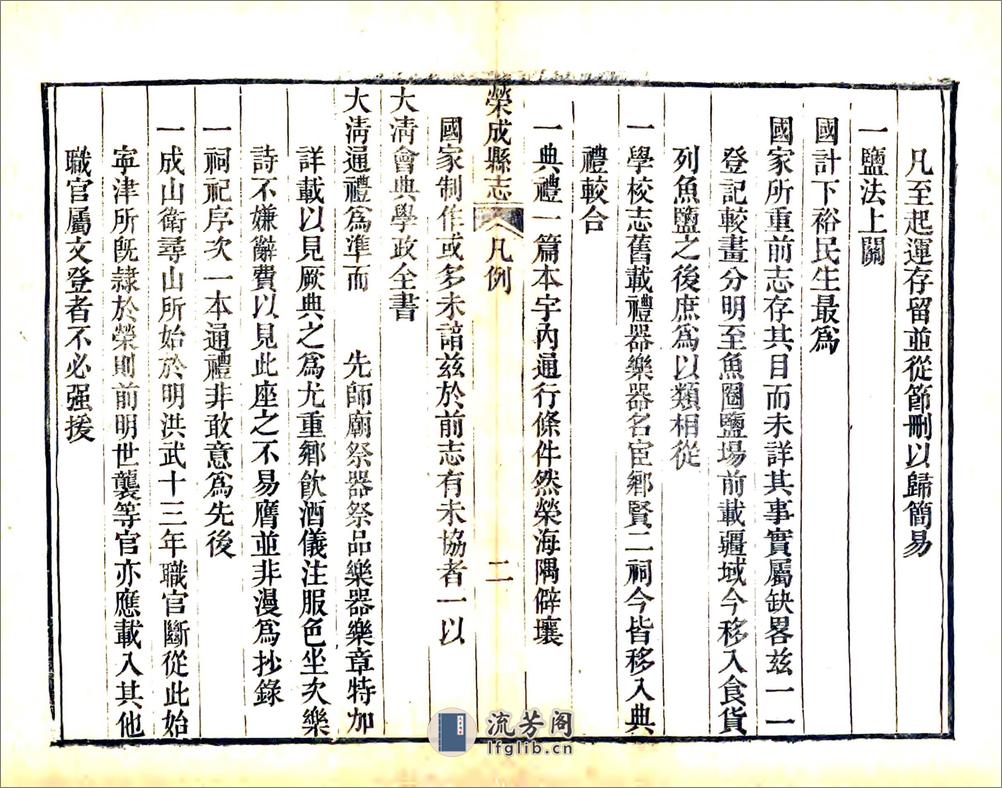 凡至起運存留並從節刪以歸簡易
一鹽法上關
國計下裕民生最爲
國家所重前志存其目而未詳其事實屬缺畧茲一一
登記較畫分明至魚圈鹽場前載疆域今移入食貨
列魚鹽之後庶爲以類相從
一學校志舊載禮器樂器名宦鄉賢二祠今皆移入典
禮較合
一典禮一篇本宇內通行條件然榮海隅僻壤
榮成縣志 凡例 二
國家制作或多未諳茲於前志有未協者一以
大清會典學政全書
大清通禮爲準而 先師廟祭器祭品樂器樂章特加
詳載以見厥典之爲尤重鄉飲酒儀注服色坐次樂
詩不嫌辭費以見此座之不易膺並非漫爲抄錄
一祠祀序次一本通禮非敢意爲先後
一成山衛尋山所始於明洪武十三年職官斷從此始
寧津所旣隷於榮則前明世襲等官亦應載入其他
職官屬文登者不必强援
流芳阁
lfglib.cn